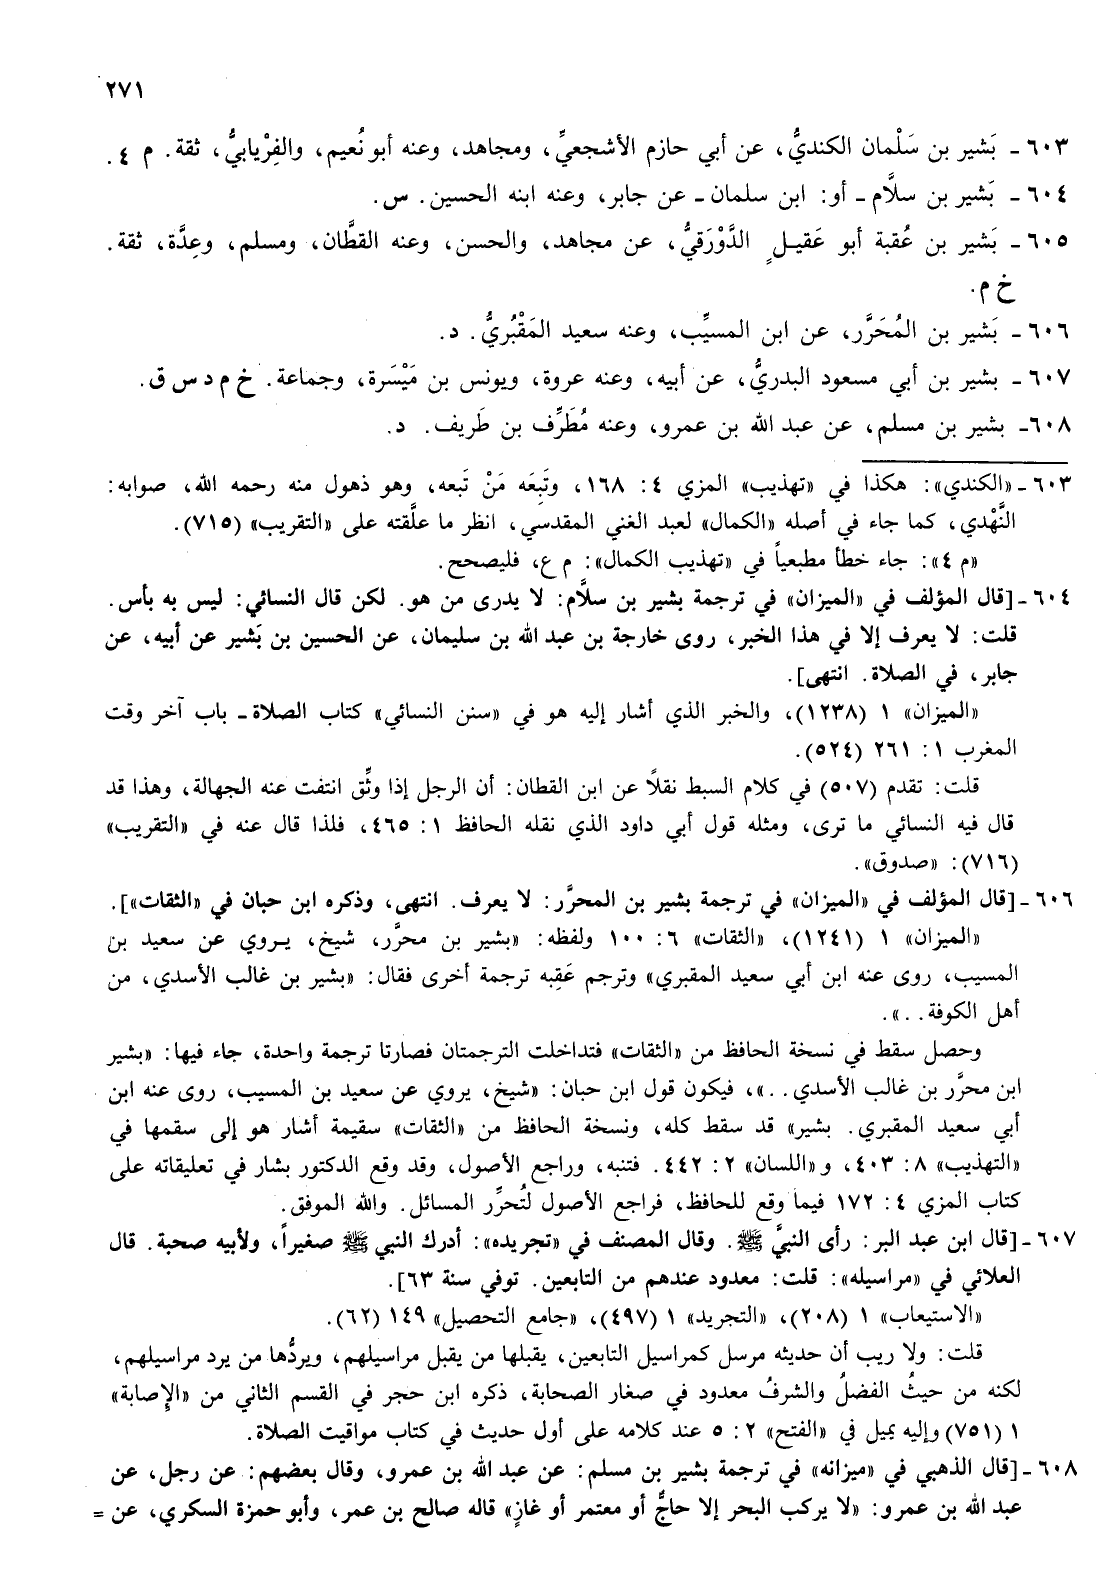 ٢٧١
٦٠٣ـ بَشير بن سَلْمان الكنديُّ، عن أبي حازم الأشجعيِّ، ومجاهد، وعنه أبو نُعيم، والفِرْيابيُّ، ثقة. م ٤.
٦٠٤ـ بَشير بن سلاَّم ـ أو: ابن سلمان ـ عن جابر، وعنه ابنه الحسين. س.
٦٠٥ـ بَشير بن عُقبة أبو عَقيـلٍ الدَّوْرَقيُّ، عن مجاهد، والحسن، وعنه القطَّان، ومسلم، وعِدَّة، ثقة.
خ م.
٦٠٦ـ بَشير بن المُحَرَّر، عن ابن المسيِّب، وعنه سعيد المَقْبُريُّ. د.
٦٠٧ـ بشير بن أبي مسعود البدريُّ، عن أبيه، وعنه عروة، ويونس بن مَيْسَرة، وجماعة. خ م د س ق.
٦٠٨ـ بشير بن مسلم، عن عبد الله بن عمرو، وعنه مُطَرِّف بن طَريف. د.
٦٠٣ـ «الكندي»: هكذا في «تهذيب» المزي ٤: ١٦٨، وتَبِعَه مَنْ تَبعه، وهو ذهول منه رحمه الله، صوابه:
النَّهْدي، كما جاء في أصله «الكمال» لعبد الغني المقدسي، انظر ما علَّقته على «التقريب» (٧١٥).
«م ٤»: جاء خطأ مطبعياً في «تهذيب الكمال»: م ع، فليصحح.
٦٠٤ـ [قال المؤلف في «الميزان» في ترجمة بشير بن سلاَّم: لا يدرى من هو. لكن قال النسائي: ليس به بأس.
قلت: لا يعرف إلا في هذا الخبر، روى خارجة بن عبد الله بن سليمان، عن الحسين بن بَشير عن أبيه، عن
جابر، في الصلاة. انتهى].
«الميزان» ١ (١٢٣٨)، والخبر الذي أشار إليه هو في «سنن النسائي» كتاب الصلاة ـ باب آخر وقت
المغرب ١: ٢٦١ (٥٢٤).
قلت: تقدم (٥٠٧) في كلام السبط نقلاً عن ابن القطان: أن الرجل إذا وثِّق انتفت عنه الجهالة، وهذا قد
قال فيه النسائي ما ترى، ومثله قول أبي داود الذي نقله الحافظ ١: ٤٦٥، فلذا قال عنه في «التقريب»
(٧١٦): «صدوق».
٦٠٦ـ [قال المؤلف في «الميزان» في ترجمة بشير بن المحرَّر: لا يعرف. انتهى، وذكره ابن حبان في «الثقات»].
«الميزان» ١ (١٢٤١)، «الثقات» ٦: ١٠٠ ولفظه: «بشير بن محرَّر، شيخ، يـروي عن سعيد بن
المسيب، روى عنه ابن أبي سعيد المقبري» وترجم عَقِبه ترجمة أخرى فقال: «بشير بن غالب الأسدي، من
أهل الكوفة..».
وحصل سقط في نسخة الحافظ من «الثقات» فتداخلت الترجمتان فصارتا ترجمة واحدة، جاء فيها: «بشير
ابن محرَّر بن غالب الأسدي..»، فيكون قول ابن حبان: «شيخ، يروي عن سعيد بن المسيب، روى عنه ابن
أبي سعيد المقبري. بشير» قد سقط كله، ونسخة الحافظ من «الثقات» سقيمة أشار هو إلى سقمها في
«التهذيب» ٨: ٤٠٣، و«اللسان» ٢: ٤٤٢. فتنبه، وراجع الأصول، وقد وقع الدكتور بشار في تعليقاته على
كتاب المزي ٤: ١٧٢ فيما وقع للحافظ، فراجع الأصول لتُحرَّر المسائل. والله الموفق.
٦٠٧ـ [قال ابن عبد البر: رأى النبيَّ ﷺ. وقال المصنف في «تجريده»: أدرك النبي ﷺ صغيراً، ولأبيه صحبة. قال
العلائي في «مراسيله»: قلت: معدود عندهم من التابعين. توفي سنة ٦٣].
«الاستيعاب» ١ (٢٠٨)، «التجريد» ١ (٤٩٧)، «جامع التحصيل» ١٤٩ (٦٢).
قلت: ولا ريب أن حديثه مرسل كمراسيل التابعين، يقبلها من يقبل مراسيلهم، ويردُّها من يرد مراسيلهم،
لكنه من حيثُ الفضلُ والشرفُ معدود في صغار الصحابة، ذكره ابن حجر في القسم الثاني من «الإصابة»
١ (٧٥١) وإليه يميل في «الفتح» ٢: ٥ عند كلامه على أول حديث في كتاب مواقيت الصلاة.
٦٠٨ـ [قال الذهبي في «ميزانه» في ترجمة بشير بن مسلم: عن عبد الله بن عمرو، وقال بعضهم: عن رجل، عن
عبد الله بن عمرو: «لا يركب البحر إلا حاجٌّ أو معتمر أو غازٍ» قاله صالح بن عمر، وأبو حمزة السكري، عن =